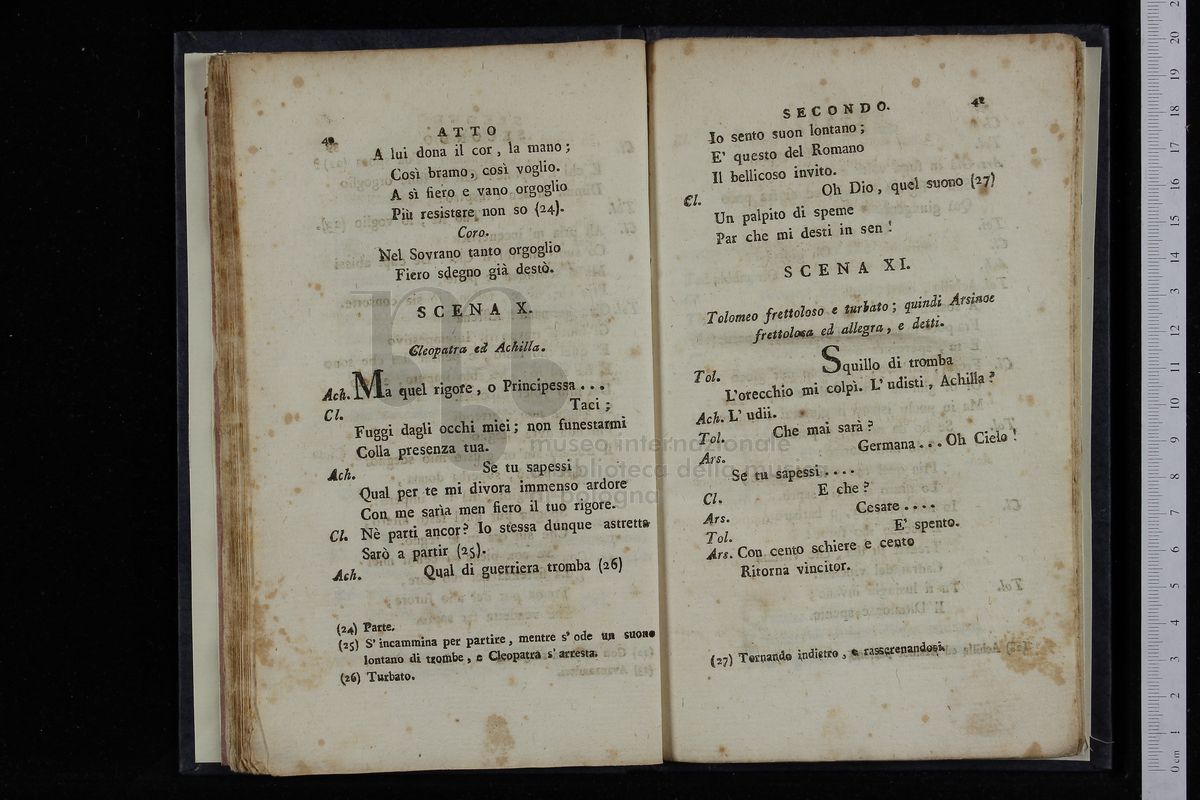 40
ATTO
A lui dona il cor, la mano;
Così bramo, così voglio.
A sì fiero e vano orgoglio
Più resistere non so (24).
Coro.
Nel Sovrano tanto orgoglio
Fiero sdegno già destò.
SCENA X.
Cleopatra ed Achilla.
Ach. Ma quel rigore, o Principessa ...
Cl. Taci;
Fuggi dagli occhi miei; non funestarmi
Colla presenza tua.
Ach. Se tu sapessi
Qual per te mi divora immenso ardore
Con me sarìa men fiero il tuo rigore.
Cl. Nè parti ancor? Io stessa dunque astretta
Sarò a partir (25).
Ach. Qual di guerriera tromba (26)
(24) Parte.
(25) S' incammina per partire, mentre s' ode un suono
lontano di trombe, e Cleopatra s' arresta.
(26) Turbato.
SECONDO.
41
Io sento suon lontano;
E' questo del Romano
Il bellicoso invito.
Cl. Oh Dio, quel suono (27)
Un palpito di speme
Par che mi desti in sen!
SCENA XI.
Tolomeo frettoloso e turbato; quindi Arsinoe
frettolosa ed allegra, e detti.
Tol. Squillo di tromba
L'orecchio mi colpì. L' udisti, Achilla?
Ach. L' udii.
Tol. Che mai sarà?
Ars. Germana ... Oh Cielo!
Se tu sapessi ....
Cl. E che?
Ars. Cesare ....
Tol. E' spento.
Ars. Con cento schiere e cento
Ritorna vincitor.
(27) Tornando indietro, e rasserenandosi.
museo internazionale
biblioteca della musica
di bologna